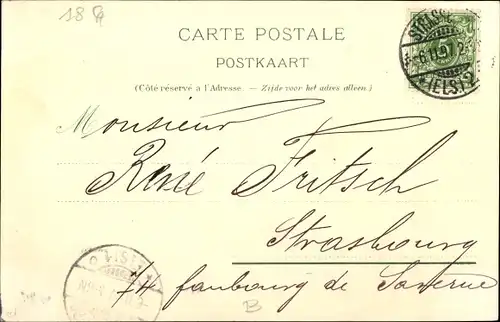 18
CARTE POSTALE
POSTKAART
(Côté réservé a l'Adresse. — Zijde voor het adres alleen.)
Monsieur
René Fritsch
Strasbourg
74 faubourg de Saverne
B